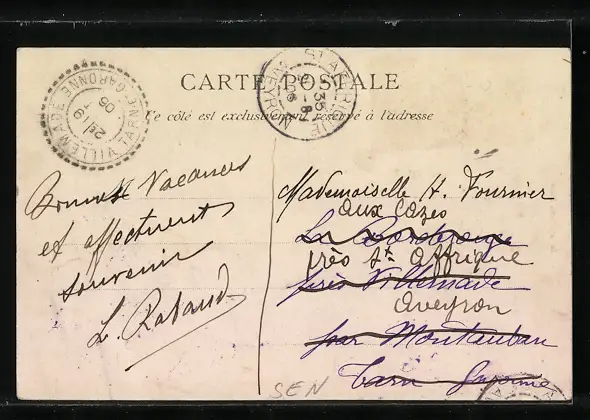 CARTE POSTALE
Ce côté est exclusivement réservé à l'adresse
VILLEMADE TARN-&-GARONNE
ST AFFRIQUE AVEYRON
Bonnes Vacances
et affectueux
souvenir
L. Rabaud
Mademoiselle H. Fournier
aux Cazes
La
près St Affrique
près Villemade
Aveyron
par Montauban
Tarn Garonne
SEN